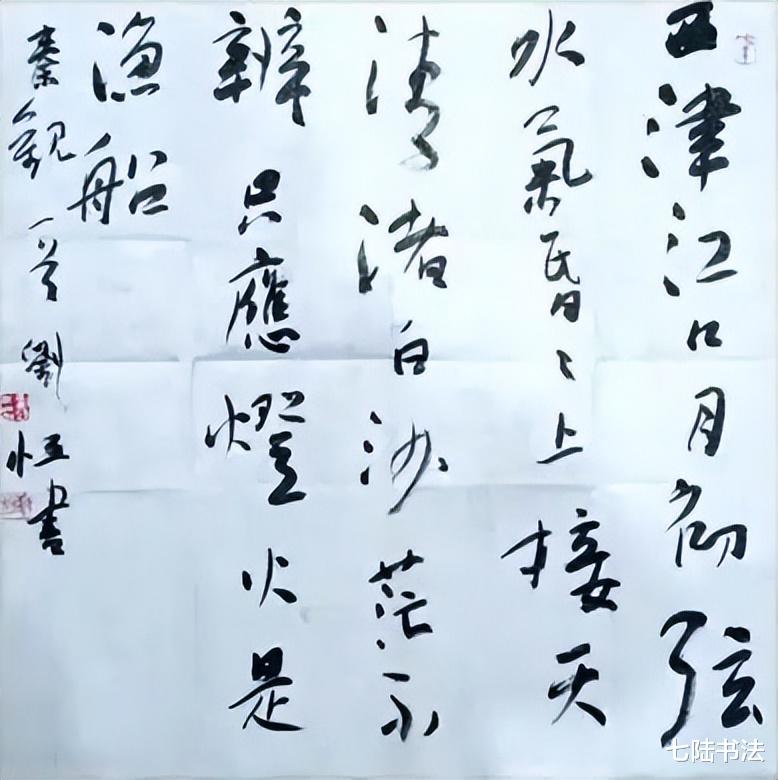 西津江口月初弦
水氣昏〻上接天
清渚白沙茫不
辨只應燈火是
漁船
秦觀一首劉恒書
七陆书法